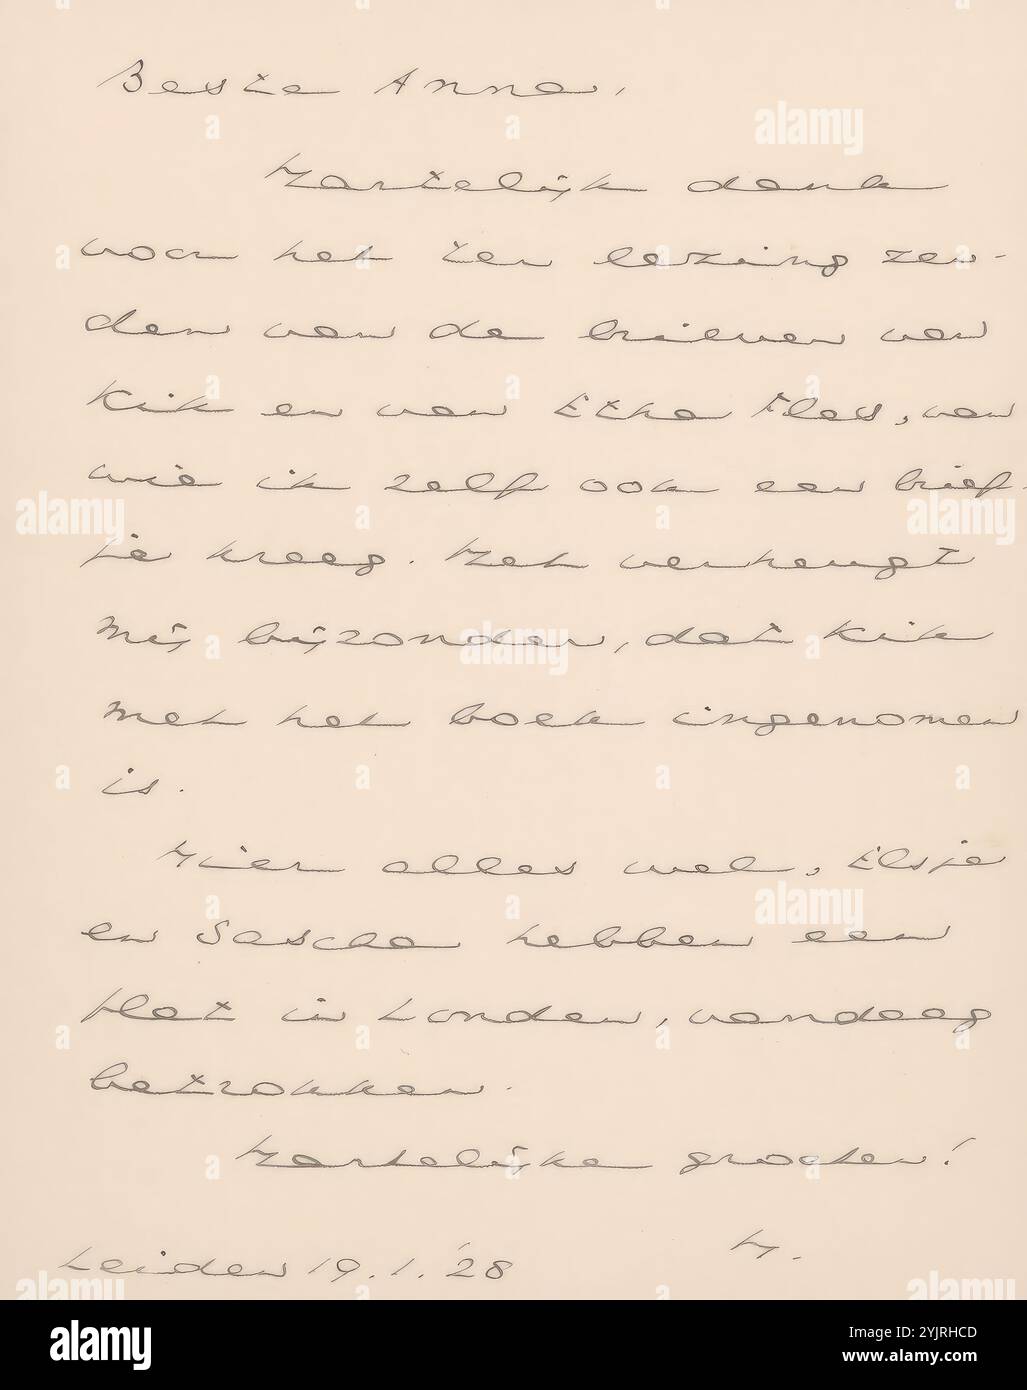 Beste Anne,
Hartelijk dank
voor het ter lezing zen-
den van de brieven van
Kik en van Etha Fles, van
wie ik zelf ook een brief-
je kreeg. Het verheugt
mij bijzonder, dat Kik
met het boek ingenomen
is.
Hier alles wel, Elsje
en Sascha hebben een
flat in Londen, vandaag
betrokken.
Hartelijke groeten!
H.
Leiden 19.1.'28
alamy
Image ID: 2YJRHCD
www.alamy.com